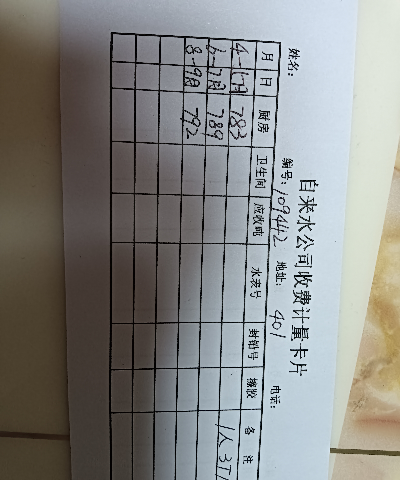 自来水公司收费计量卡片
姓名: 编号:109442 地址: 401 电话:
月 日 厨房 卫生间 应收吨 水表号 封铅号 橡胶 备注
783 1人3T
6-7月 789
8-9月 792